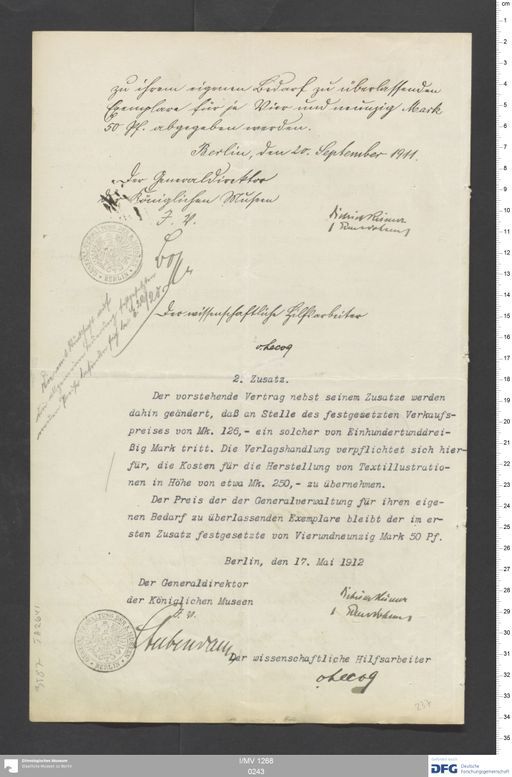 zu ihrem eigenen Bedarf zu überlassenden
Exemplare für je Vier und neunzig Mark
50 Pf. abgegeben werden.
Berlin, den 20. September 1911.
Der Generaldirektor
der Königlichen Museen
J. V.
Der wissenschaftliche Hilfsarbeiter
v. Lecoq
2. Zusatz.
Der vorstehende Vertrag nebst seinem Zusatze werden
dahin geändert, daß an Stelle des festgesetzten Verkaufs-
preises von Mk. 126,- ein solcher von Einhundertunddrei-
ßig Mark tritt. Die Verlagshandlung verpflichtet sich hier-
für, die Kosten für die Herstellung von Textillustratio-
nen in Höhe von etwa Mk. 250,- zu übernehmen.
Der Preis der der Generalverwaltung für ihren eige-
nen Bedarf zu überlassenden Exemplare bleibt der im er-
sten Zusatz festgesetzte von Vierundneunzig Mark 50 Pf.
Berlin, den 17. Mai 1912
Der Generaldirektor
der Königlichen Museen
J. V.
Der wissenschaftliche Hilfsarbeiter
v. Lecoq
237
Ethnologisches Museum
Staatliche Museen zu Berlin
I/MV 1268
0243
Gefördert durch
DFG Deutsche
Forschungsgemeinschaft
cm
1
2
3
4
5
6
7
8
9
10
11
12
13
14
15
16
17
18
19
20
21
22
23
24
25
26
27
28
29
30
31
32
33
34
35